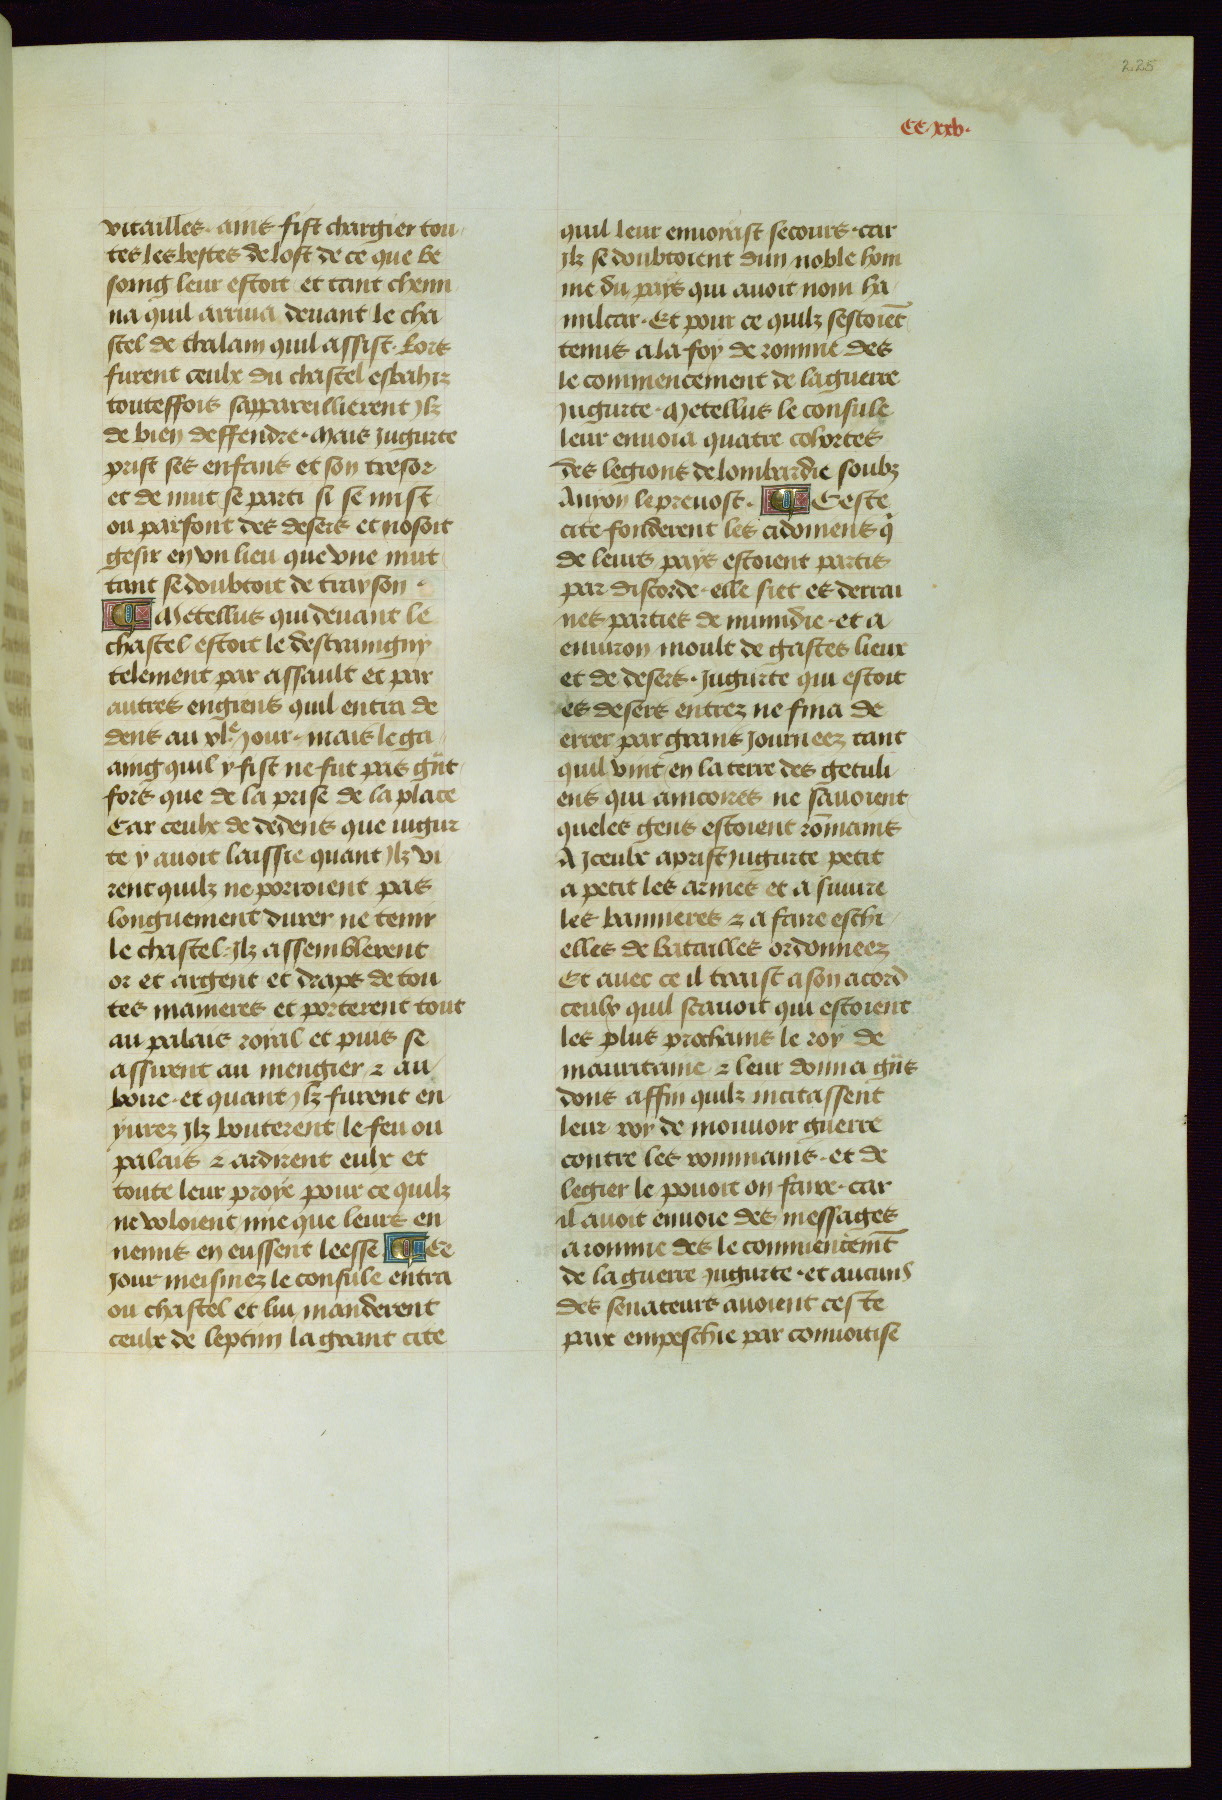 225
CC.xxv.
vitailles. ains fist chargier tou
tes les bestes de lost de ce que be
soing leur estoit et tant chemi
na quil arriua deuant le cha
stel de thalam quil assist. Lors
furent ceulx du chastel esbahiz
touteffois sappareillierent jlz
de bien deffendre. Mais jugurte
prist ses enfans et son tresor
et de nuit se parti si se mist
ou parfont des desers et nosoit
gesir en vn lieu que vne nuit
tant se doubtoit de trayson.
¶ Metellus qui deuant le
chastel estoit le destraingny
telement par assault et par
autres engiens quil entra de
dens au xle. jour. mais le ga
aing quil y fist ne fut pas gr̃nt
fors que de la prise de la place
Car ceulx de dedens que iugur
te y auoit laissie quant jlz vi
rent quilz ne porroient pas
longuement durer ne tenir
le chastel. jlz assemblerent
or et argent et draps de tou
tes manieres et porterent tout
au palais royal et puis se
assirent au mengier ⁊ au
boire. et quant jlz furent en
yurez jlz bouterent le feu ou
palais ⁊ ardirent eulx et
toute leur proye pour ce quilz
ne voloient mie que leurs en
nemis en eussent leesse ¶ Ce
jour meismez le consule entra
ou chastel et lui manderent
ceulx de leptim la grant cite
quil leur enuoiast secours. car
jlz se doubtoient dun noble hom
me du pays qui auoit nom ha
milcar. Et pour ce quilz sestoiẽt
tenus a la foy de romme des
le commencement de la guerre
jugurte. Metellus le consule
leur enuoia quatre cohortes
des legions de lombardie soubz
Anyon le preuost. ¶ Ceste
cite fonderent les cidoniens q̃
de leurs pays estoient partis
par discorde. elle siet es derrai
nes parties de numidie. et a
enuiron moult de gastes lieux
et de desers. jugurte qui estoit
es desers entrez ne fina de
errer par grans journeez tant
quil vint en la terre des getuli
ens qui aincoires ne sauoient
queles gens estoient rõmains
A jceulx aprist jugurte petit
a petit les armes et a suiure
les bannieres ⁊ a faire eschi
elles de batailles ordonneez
Et auec ce il traist a son acord
ceulx quil scauoit qui estoient
les plus prochains le roy de
mauritaine ⁊ leur donna gr̃ns
dons affin quilz incitassent
leur roy de mouuoir guerre
contre les rommains. et de
legier le pouoit on faire. car
il auoit enuoie des messages
a romme des le commencemẽt
de la guerre jugurte. et aucuns
des senateurs auoient ceste
paix empeschie par conuoitise